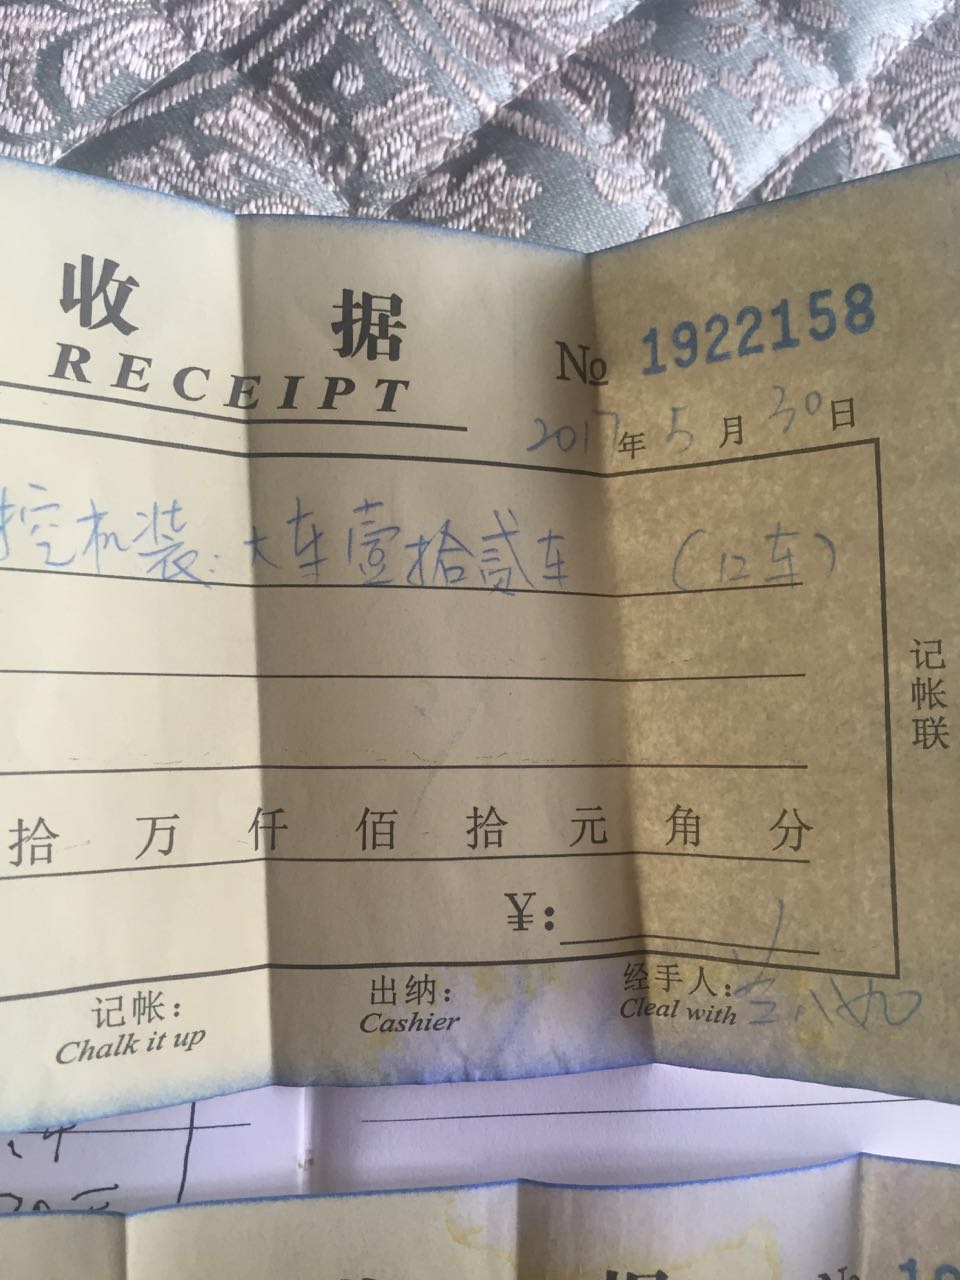 收 据
RECEIPT
№ 1922158
2017年5月30日
挖机装:大车壹拾贰车 (12车)
拾 万 仟 佰 拾 元 角 分
¥:
记帐:
Chalk it up
出纳:
Cashier
经手人:
Cleal with
记帐联